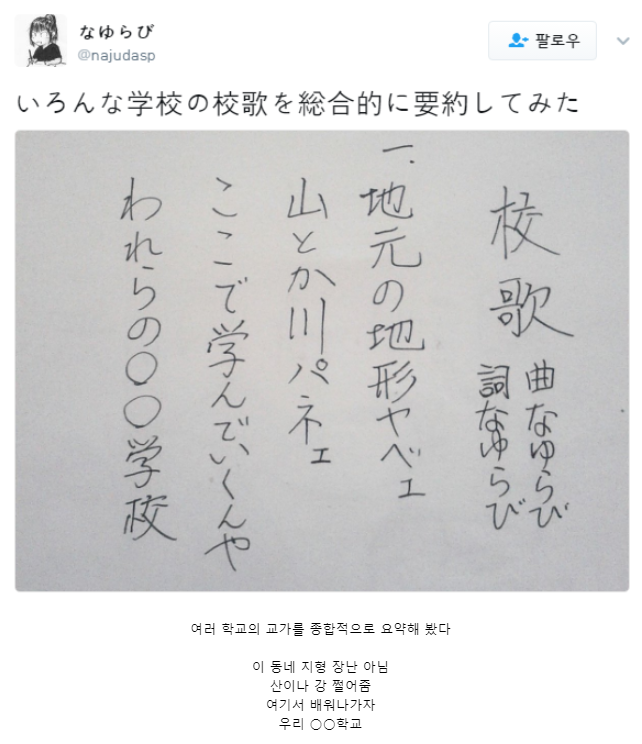 なゆらび
@najudasp
팔로우
いろんな学校の校歌を総合的に要約してみた
校歌
曲なゆらび
詞なゆらび
一、
地元の地形ヤベェ
山とか川パネェ
ここで学んでいくんや
われらの〇〇学校
여러 학교의 교가를 종합적으로 요약해 봤다
이 동네 지형 장난 아님
산이나 강 쩔어줌
여기서 배워나가자
우리 ○○학교